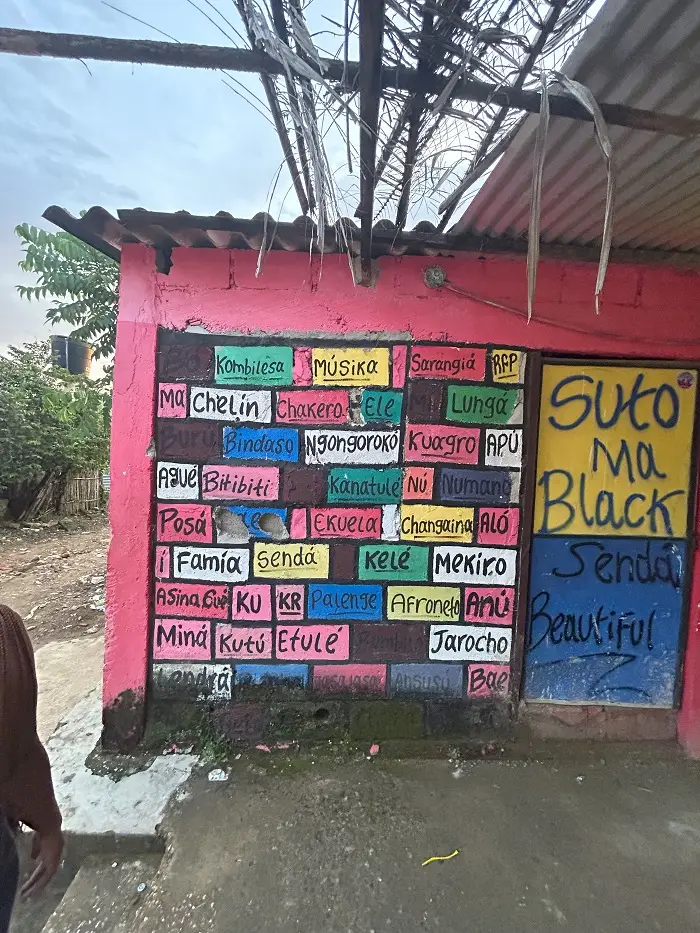 Kombilesa Músika Sarangiá RFP
Ma Chelín Chakero Ele Lungá
Burú Bindaso Ngongorokó Kuagro APÚ
Ague Bitibiti Kanatulé NÚ Numano
Posá Ekuela Changaina ALÓ
í Famía Sendá Kelé Mekiro
Asina Güe KU KR Palenge Afroneto Anú
Miná Kutú Etulé Jarocho
Ansusú Bae
Suto
Ma
Black
Sendá
Beautiful